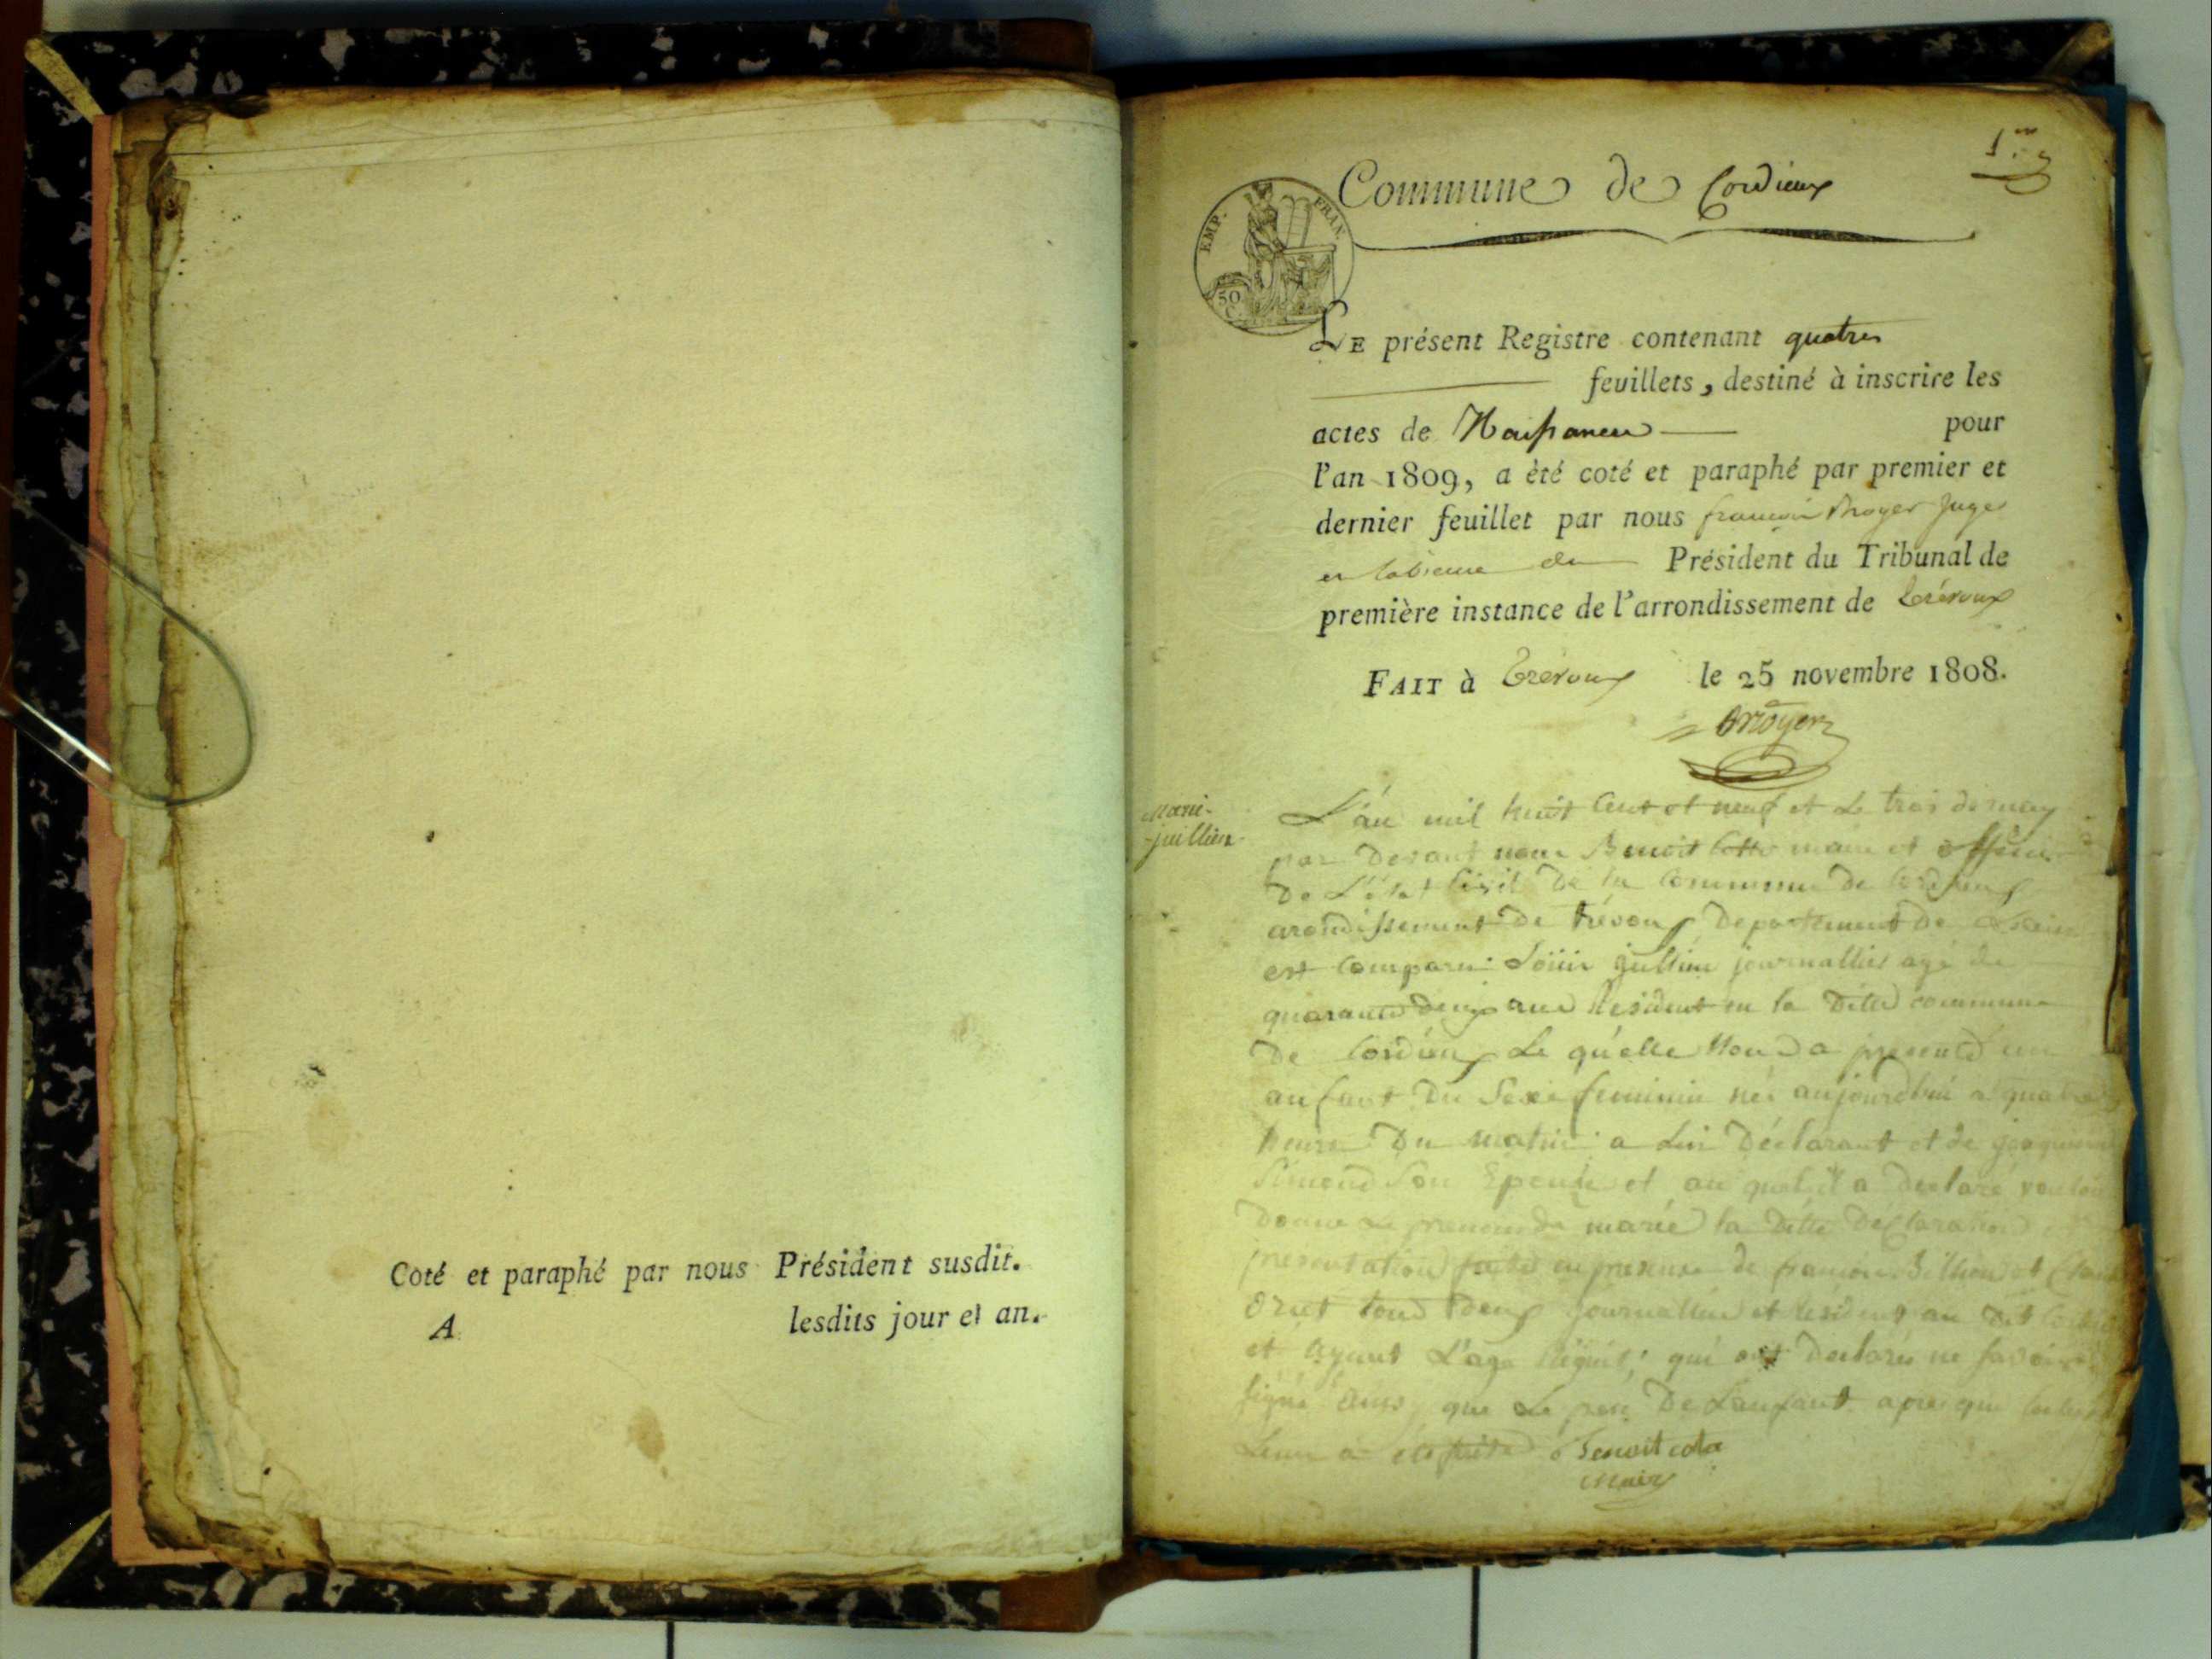 Coté et paraphé par nous Président susdit.
A lesdits jour et an.
1.er
Commune de Cordieux
EMP. FRAN.
50
C
LE présent Registre contenant quatres
feuillets, destiné à inscrire les
actes de Naissances pour
l'an 1809, a èté coté et paraphé par premier et
dernier feuillet par nous françois Juge
Président du Tribunal de
première instance de l'arrondissement de Trévoux
FAIT à Trévoux le 25 novembre 1808.
marie
juillien
L'an mil huit Cent et neuf et Le trois de may
par Devant nous Benoit Cotta maire et officier
De L'état Civil De la Commune de Cordieux
arondissement De trévoux Departement De
est Comparu Louis jullien journallier agé de
quarante deux ans Résident en la Ditte commune
De Cordieux Le quelle Nous a presenté un
anfant Du Sexe feminin née aujourdhui a quatre
heures Du matin a Lui Déclarant et de
Simond Son Epouse et au quel il a declaré vouloir
Donner Le prenom de marie la Ditte Déclaration
presentation faite en presense de françois et
tous deux journallier et résident au Dit
et Ayant L'age Réquis qui ont Declarés ne savoir
signé ains que Le pere De Lanfant apres que
Leur a été faite Benoit cota
maire